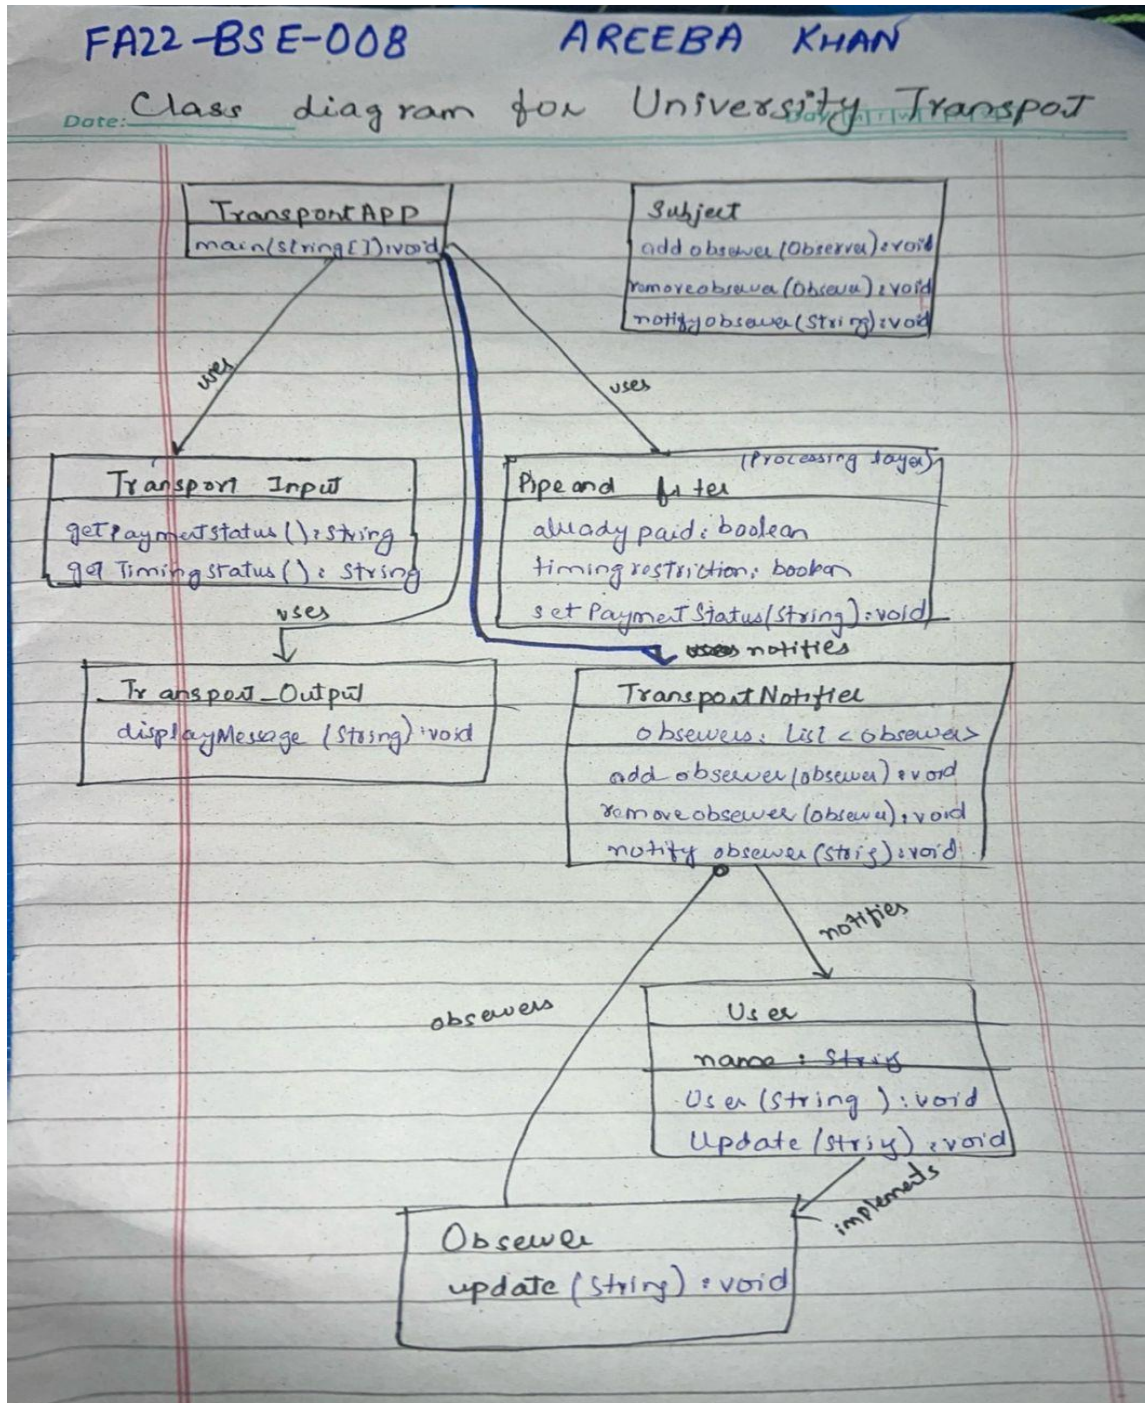 FA22-BSE-008 AREEBA KHAN
Class diagram for University Transpot
Date:
TransportApp
main(String[]):void
Subject
add observer(Observer):void
removeobserver(Observer):void
notifyobserver(String):void
uses
uses
Transport Input
getPaymentstatus():String
get Timingstatus(): String
(Processing layer)
Pipe and filter
already paid: boolean
timing restriction: boolean
set Payment Status(String):void
uses
notifies
Transport_Output
displayMessage (String):void
TransportNotifier
observers: List <observer>
add observer(observer):void
remove observer(observer):void
notify observer(String):void
notifies
observers
User
name: String
User(String):void
Update(String):void
implements
Observer
update(String):void